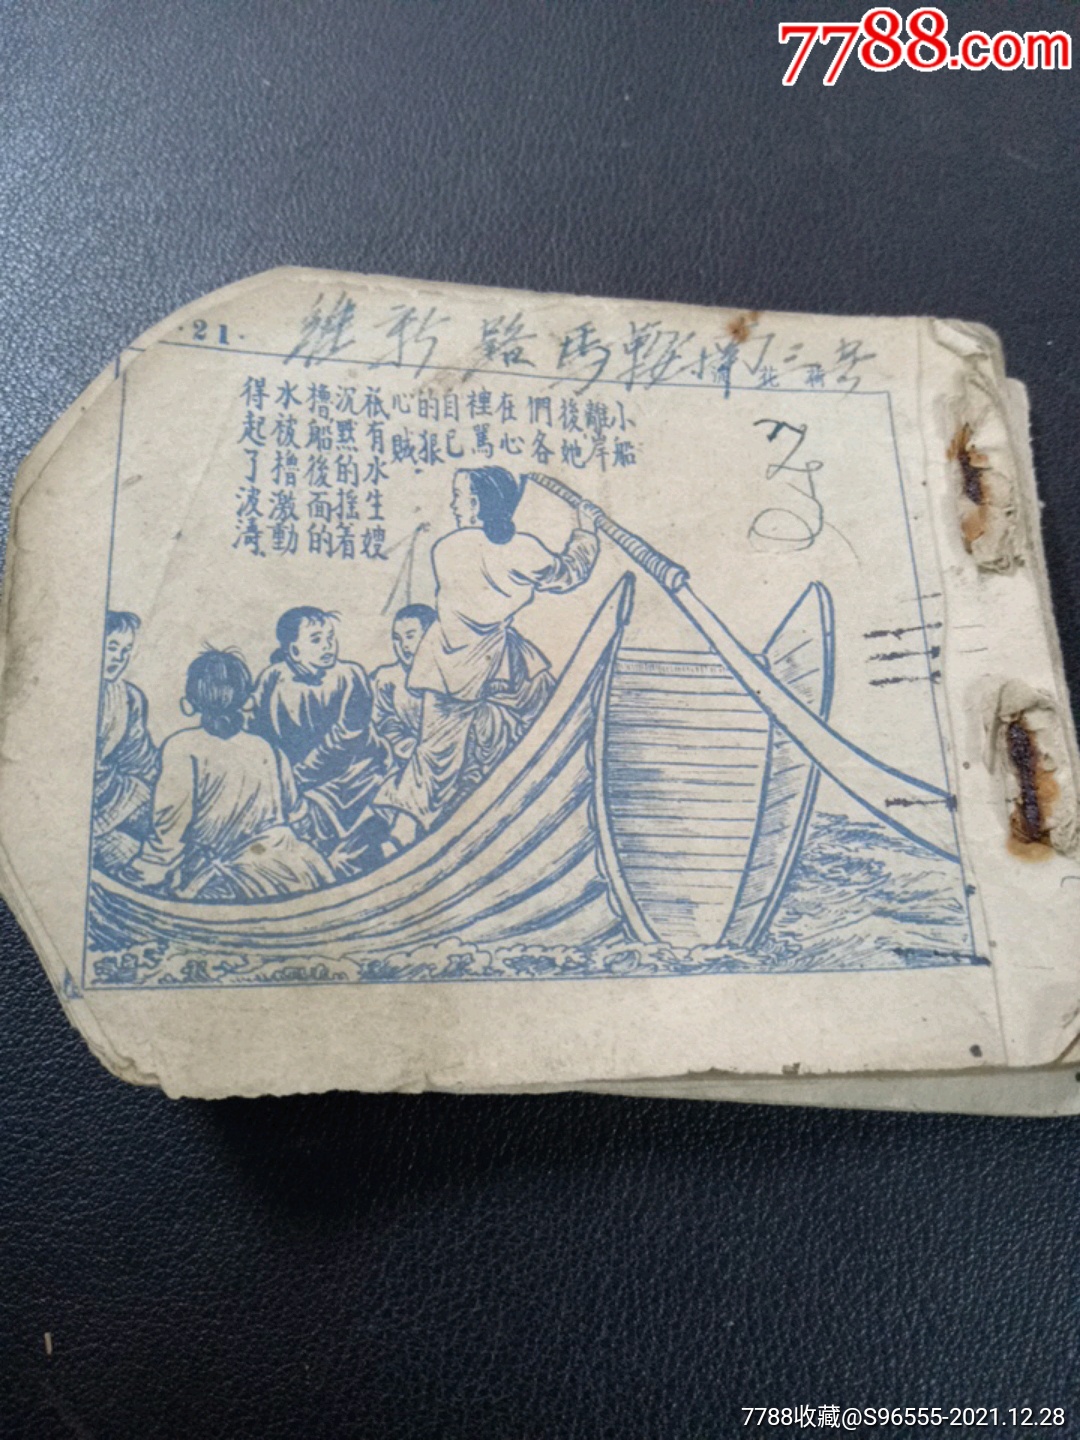 7788.com
·21·
維新路馬鞍
小船
離岸
後她
們各
在心
裡罵
自己
的狠
心賊。
祇有水生嫂
沉默的搖着
擼船後面的
水被擼激動
得起了波濤
7788收藏@S96555-2021.12.28